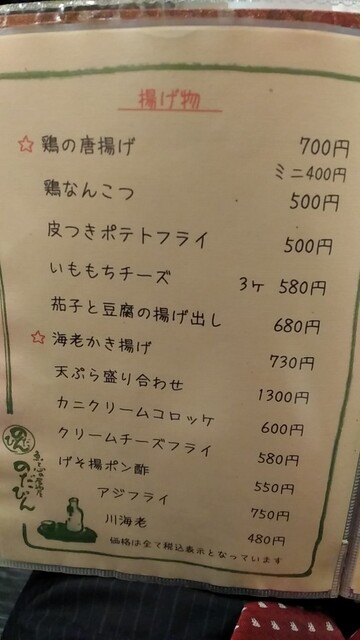 揚げ物
☆ 鶏の唐揚げ 700円
ミニ400円
鶏なんこつ 500円
皮つきポテトフライ 500円
いももちチーズ 3ヶ 580円
茄子と豆腐の揚げ出し 680円
☆ 海老かき揚げ 730円
天ぷら盛り合わせ 1300円
カニクリームコロッケ 600円
クリームチーズフライ 580円
げそ揚ポン酢 550円
アジフライ 750円
川海老 480円
価格は全て税込表示となっています
のたびん